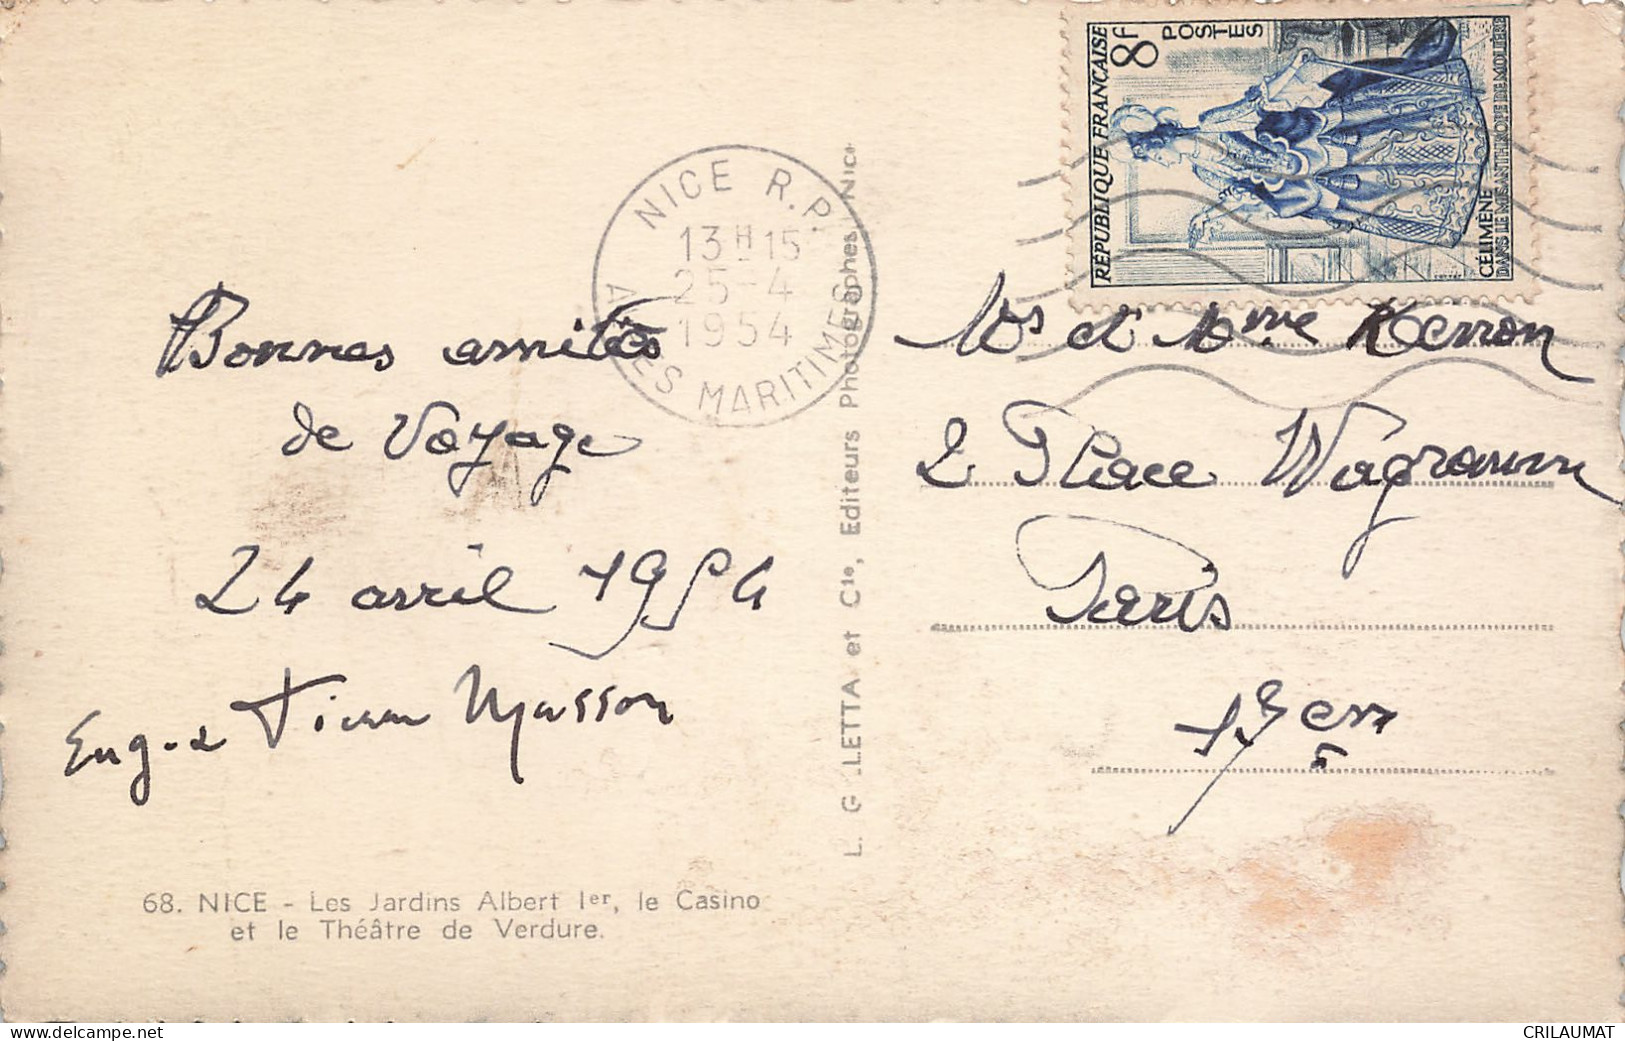 RÉPUBLIQUE FRANÇAISE
8F
POSTES
CÉLIMÈNE
DANS LE MISANTHROPE DE MOLIÈRE
NICE R.P.
13H15
25-4
1954
ALPES MARITIMES
Bonnes amitiés
de Voyage
24 avril 1954
Eug. Masson
68. NICE - Les Jardins Albert Ier, le Casino
et le Théâtre de Verdure.
L. G LETTA et Cie, Editeurs Photographes, Nice
Mr et Mme
2 Place Wagram
Paris
17em
CRILAUMAT